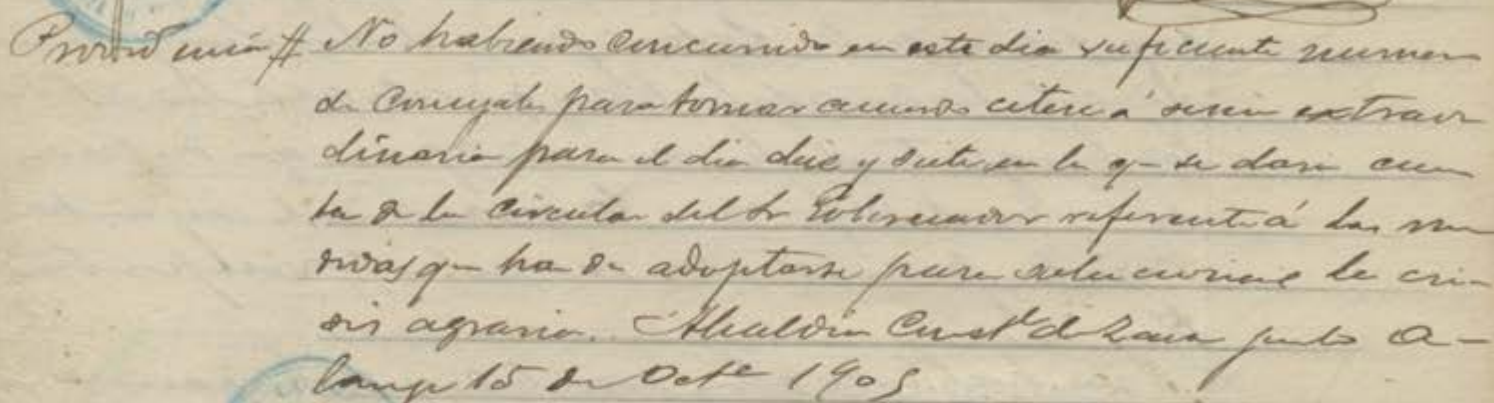 Providencia # No habiendo concurrido en este dia suficiente numero
de Concejales para tomar acuerdo citese á sesion extraor
dinaria para el dia diez y siete en la q^e se dara cuen
ta de la circular del Sr Gobernador referente á las me
didas q^e han de adoptarse para solucionar la cri-
sis agraria. Alcaldia Const^l de Zarza junto A-
lange 15 de Oct^e 1905